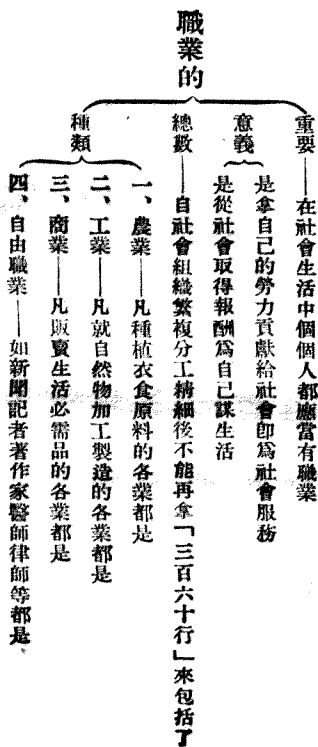 職業的
重要——在社會生活中個個人都應當有職業
意義
是拿自己的勞力貢獻給社會卽爲社會服務
是從社會取得報酬爲自己謀生活
總數——自社會組織繁複分工精細後不能再拿「三百六十行」來包括了
種類
一、農業——凡種植衣食原料的各業都是
二、工業——凡就自然物加工製造的各業都是
三、商業——凡販賣生活必需品的各業都是
四、自由職業——如新聞記者著作家醫師律師等都是